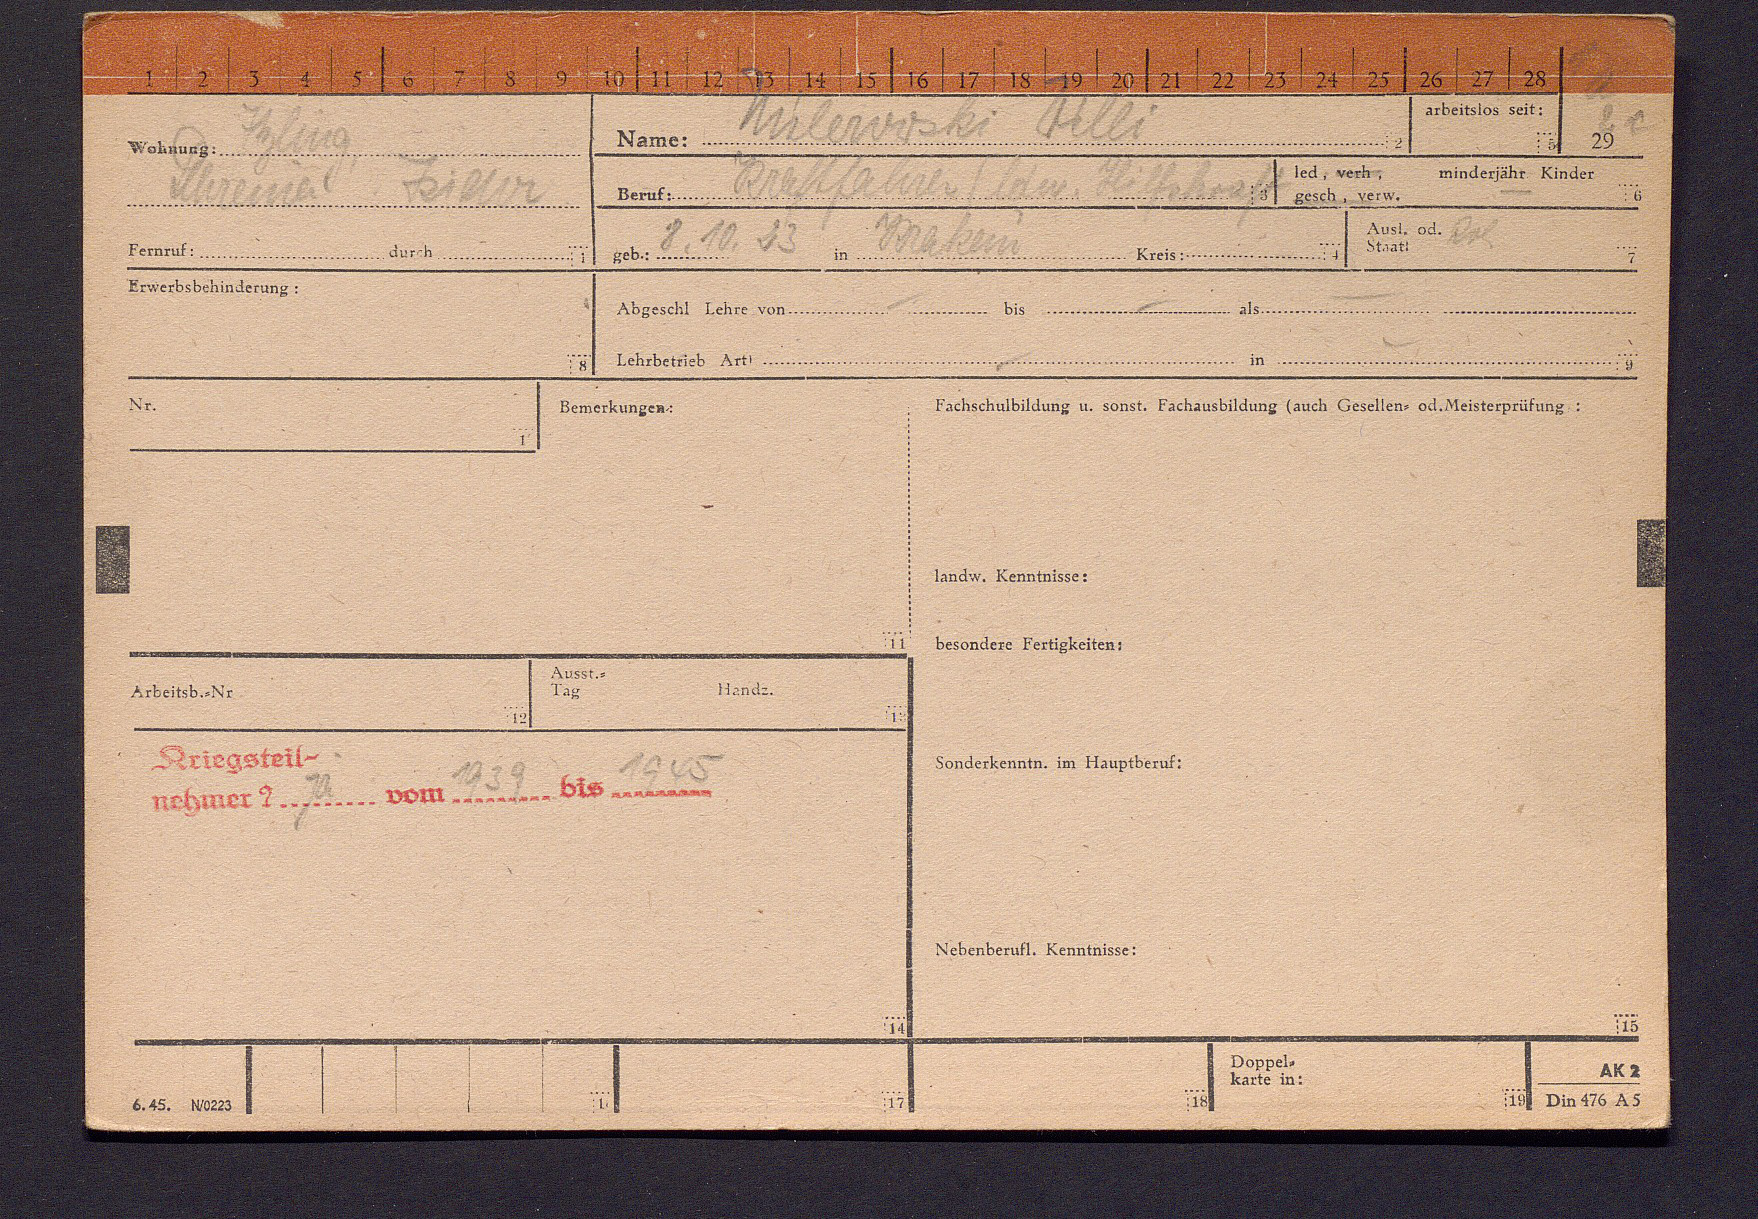 1 2 3 4 5 6 7 8 9 10 11 12 13 14 15 16 17 18 19 20 21 22 23 24 25 26 27 28
Itzling
Wohnung:
Fernruf: durch 1
Name: Willi 2
arbeitslos seit: 5
29
Beruf: Kraftfahrer / ldw. Hilfskraft 3
led, verh, gesch, verw.
minderjähr Kinder — 6
geb.: 8.10.23 in Krakein Kreis: 4
Ausl. od. Staatl Pol 7
Erwerbsbehinderung: 8
Abgeschl Lehre von — bis — als —
Lehrbetrieb Art — in — 9
Nr. 1
Bemerkungen: 11
Fachschulbildung u. sonst. Fachausbildung (auch Gesellen- od. Meisterprüfung :
landw. Kenntnisse:
besondere Fertigkeiten:
Arbeitsb.-Nr 12
Ausst.-
Tag Handz. 13
Kriegsteil-
nehmer? ja vom 1939 bis 1945
Sonderkenntn. im Hauptberuf:
Nebenberufl. Kenntnisse:
14
15
6.45. N/0223
17
18
Doppel-
karte in: 19
AK 2
Din 476 A 5